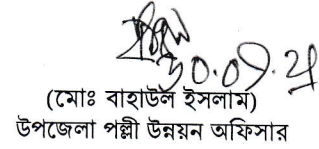 (মোঃ বাহাউল ইসলাম)
উপজেলা পল্লী উন্নয়ন অফিসার